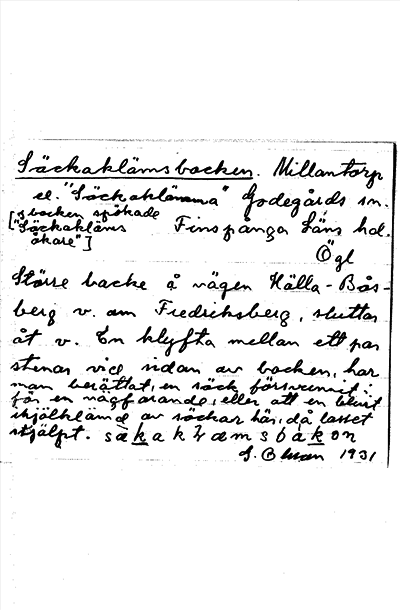 Säckaklämsbacken. Millantorp
el. "Säckaklämma" Godegårds sn.
["I backen spökade
Säckakläms
åkare"] Finspånga Läns hd.
Ögl
Större backe å vägen Hälla - Bås-
berg v. om Fredriksberg, sluttar
åt v. En klyfta mellan ett par
stenar vid sidan av backen, har
man berättat, en säck försvunnit i
för en vägfarande, eller att en blivit
ihjälklämd av säckar här, då lasset
stjälpt.
G. Oman 1931